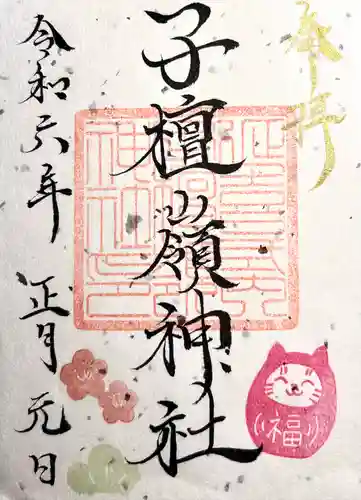 奉拝
子檀嶺神社
令和六年 正月 元日
福